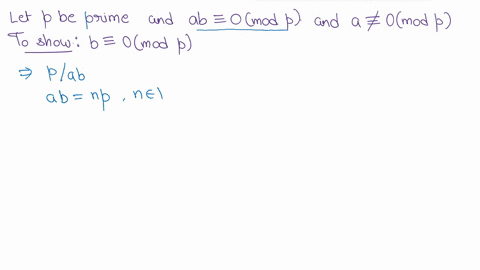 Let p be prime and ab ≡ 0(mod p) and a ≢ 0(mod p)
To show: b ≡ 0(mod p)
⇒ p/ab
ab = np , n∈